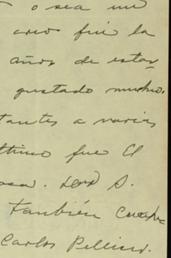 o sea un
creo fue la
años de estar
gustado mucho.
tantes a varias
ltimo fue El
osa. Los S.
también
Carlos Pellicer.